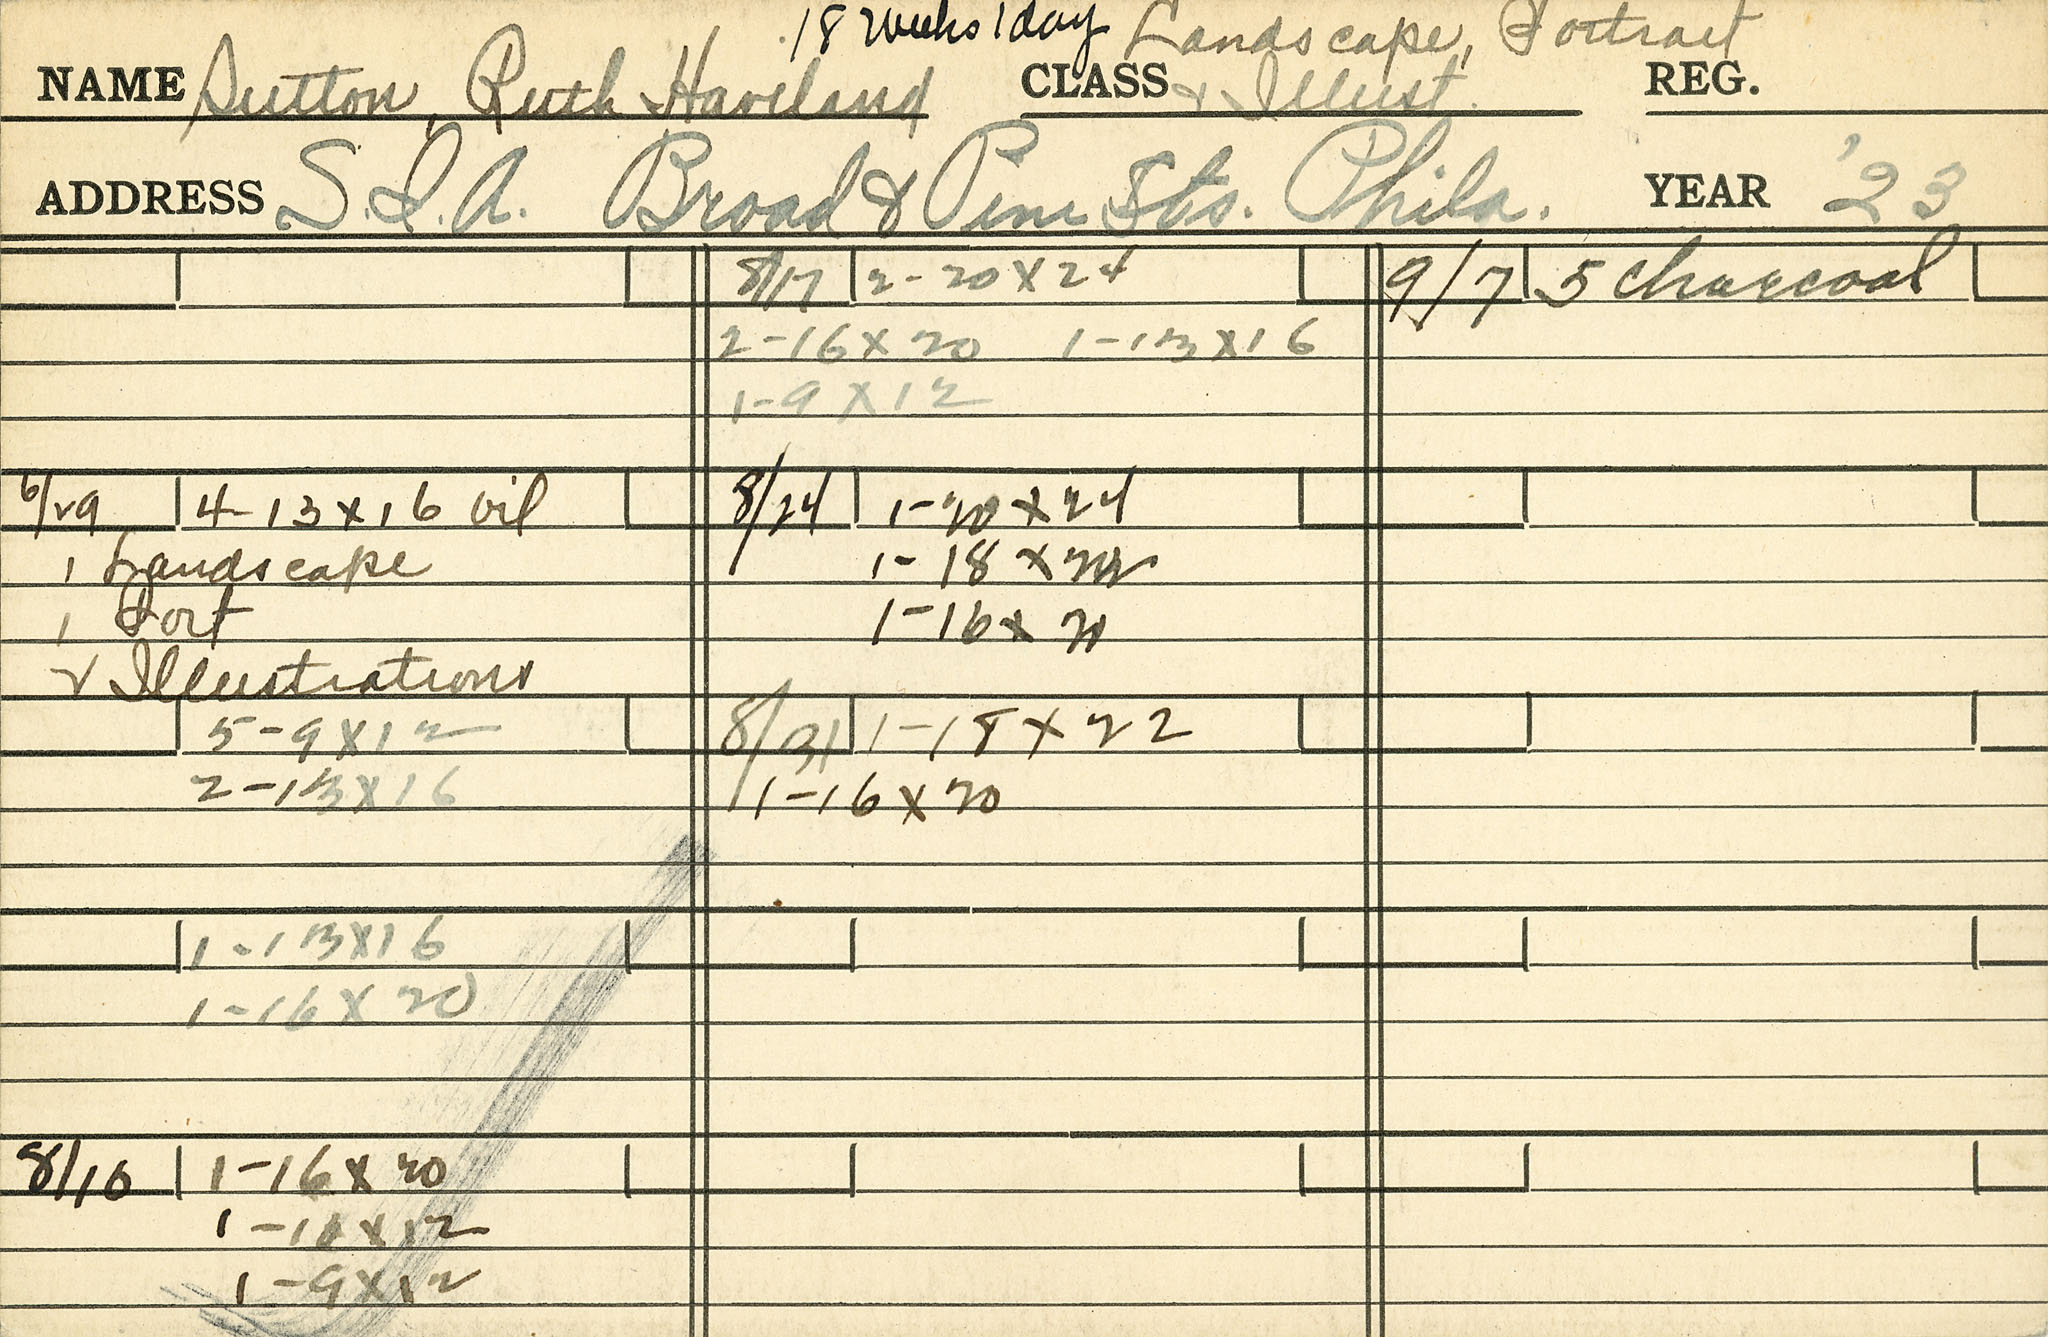 18 weeks 1 day Landscape, Portrait
NAME Sutton, Ruth Haviland CLASS & Illust. REG.
ADDRESS S.I.A. Broad & Pine Sts. Phila. YEAR '23
6/29 4-13x16 oil
1 Landscape
1 Port
2 Illustrations
5-9x12
2-13x16
1-13x16
1-16x20
8/10 1-16x20
1-9x12
8/17 2-20x24
2-16x20 1-13x16
1-9x12
8/24 1-20x24
1-18x
1-16x20
8/31 1-18x22
1-16x20
9/7 5 charcoal